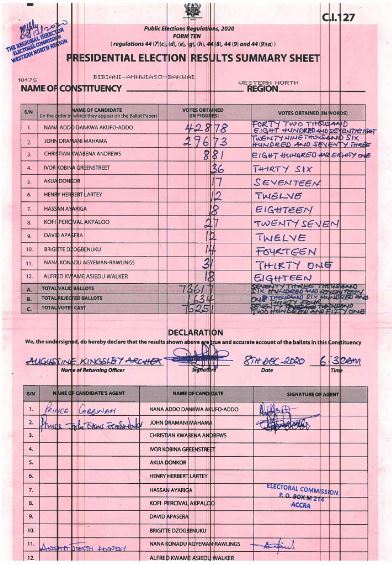 C.I.127
Public Elections Regulations, 2020
FORM TEN
( regulations 44 (7)(c), (d), (e), (g), (h), 44(8), 44 (9) and 44 (9)(a) )
2020
THE REGIONAL DIRECTOR
ELECTORAL COMMISSION
WESTERN NORTH REGION
PRESIDENTIAL ELECTION RESULTS SUMMARY SHEET
BIBIANI-ANHWIASO-BAKWAI
WESTERN NORTH
NAME OF CONSTITUENCY REGION
S/N NAME OF CANDIDATE (In the order in which they appear on the Ballot Paper) VOTES OBTAINED (IN FIGURES) VOTES OBTAINED (IN WORDS)
1. NANA ADDO DANKWA AKUFO-ADDO 42878 FORTY TWO THOUSAND EIGHT HUNDRED AND SEVENTY EIGHT
2. JOHN DRAMANI MAHAMA 29673 TWENTY NINE THOUSAND SIX HUNDRED AND SEVENTY THREE
3. CHRISTIAN KWABENA ANDREWS 881 EIGHT HUNDRED AND EIGHTY ONE
4. IVOR KOBINA GREENSTREET 36 THIRTY SIX
5. AKUA DONKOR 17 SEVENTEEN
6. HENRY HERBERT LARTEY 12 TWELVE
7. HASSAN AYARIGA 18 EIGHTEEN
8. KOFI PERCIVAL AKPALOO 27 TWENTY SEVEN
9. DAVID APASERA 12 TWELVE
10. BRIGITTE DZOGBENUKU 14 FOURTEEN
11. NANA KONADU AGYEMAN-RAWLINGS 31 THIRTY ONE
12. ALFRED KWAME ASIEDU WALKER 18 EIGHTEEN
A. TOTAL VALID BALLOTS 73617 SEVENTY THREE THOUSAND SIX HUNDRED AND SEVENTEEN
B. TOTAL REJECTED BALLOTS 1634 ONE THOUSAND SIX HUNDRED AND THIRTY FOUR
C. TOTAL VOTES CAST 75251 THOUSAND TWO HUNDRED AND FIFTY ONE
DECLARATION
We, the undersigned, do hereby declare that the results shown above are true and accurate account of the ballots in this Constituency
AUGUSTINE KINGSLEY 8TH DEC. 2020 6:30AM
Name of Returning Officer Signature Date Time
S/N NAME OF CANDIDATE'S AGENT NAME OF CANDIDATE SIGNATURE OF AGENT
1. PRINCE NANA ADDO DANKWA AKUFO-ADDO
2. JOHN DRAMANI MAHAMA
3. CHRISTIAN KWABENA ANDREWS
4. IVOR KOBINA GREENSTREET
5. AKUA DONKOR
6. HENRY HERBERT LARTEY
7. HASSAN AYARIGA
8. KOFI PERCIVAL AKPALOO
9. DAVID APASERA
10. BRIGITTE DZOGBENUKU
11. NANA KONADU AGYEMAN-RAWLINGS
12. ALFRED KWAME ASIEDU WALKER
ELECTORAL COMMISSION
P. O. BOX M 214
ACCRA